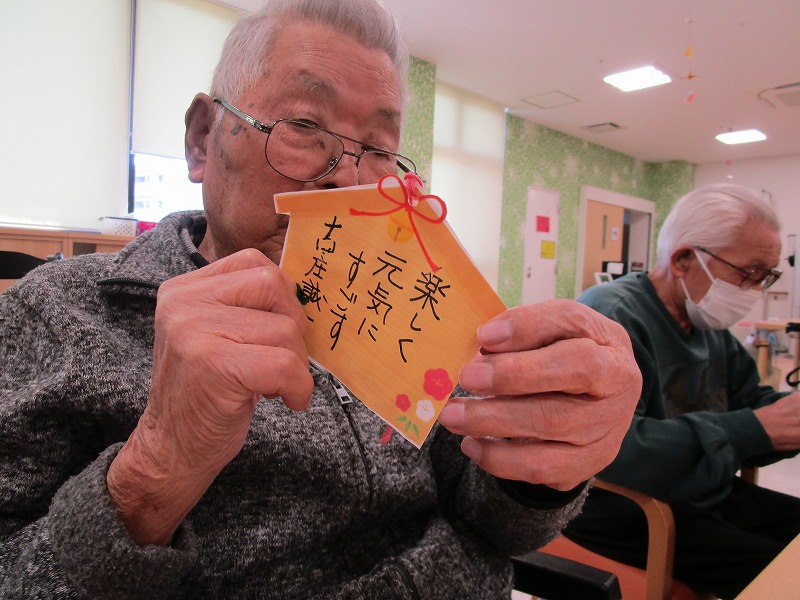 楽しく
元気に
すごす